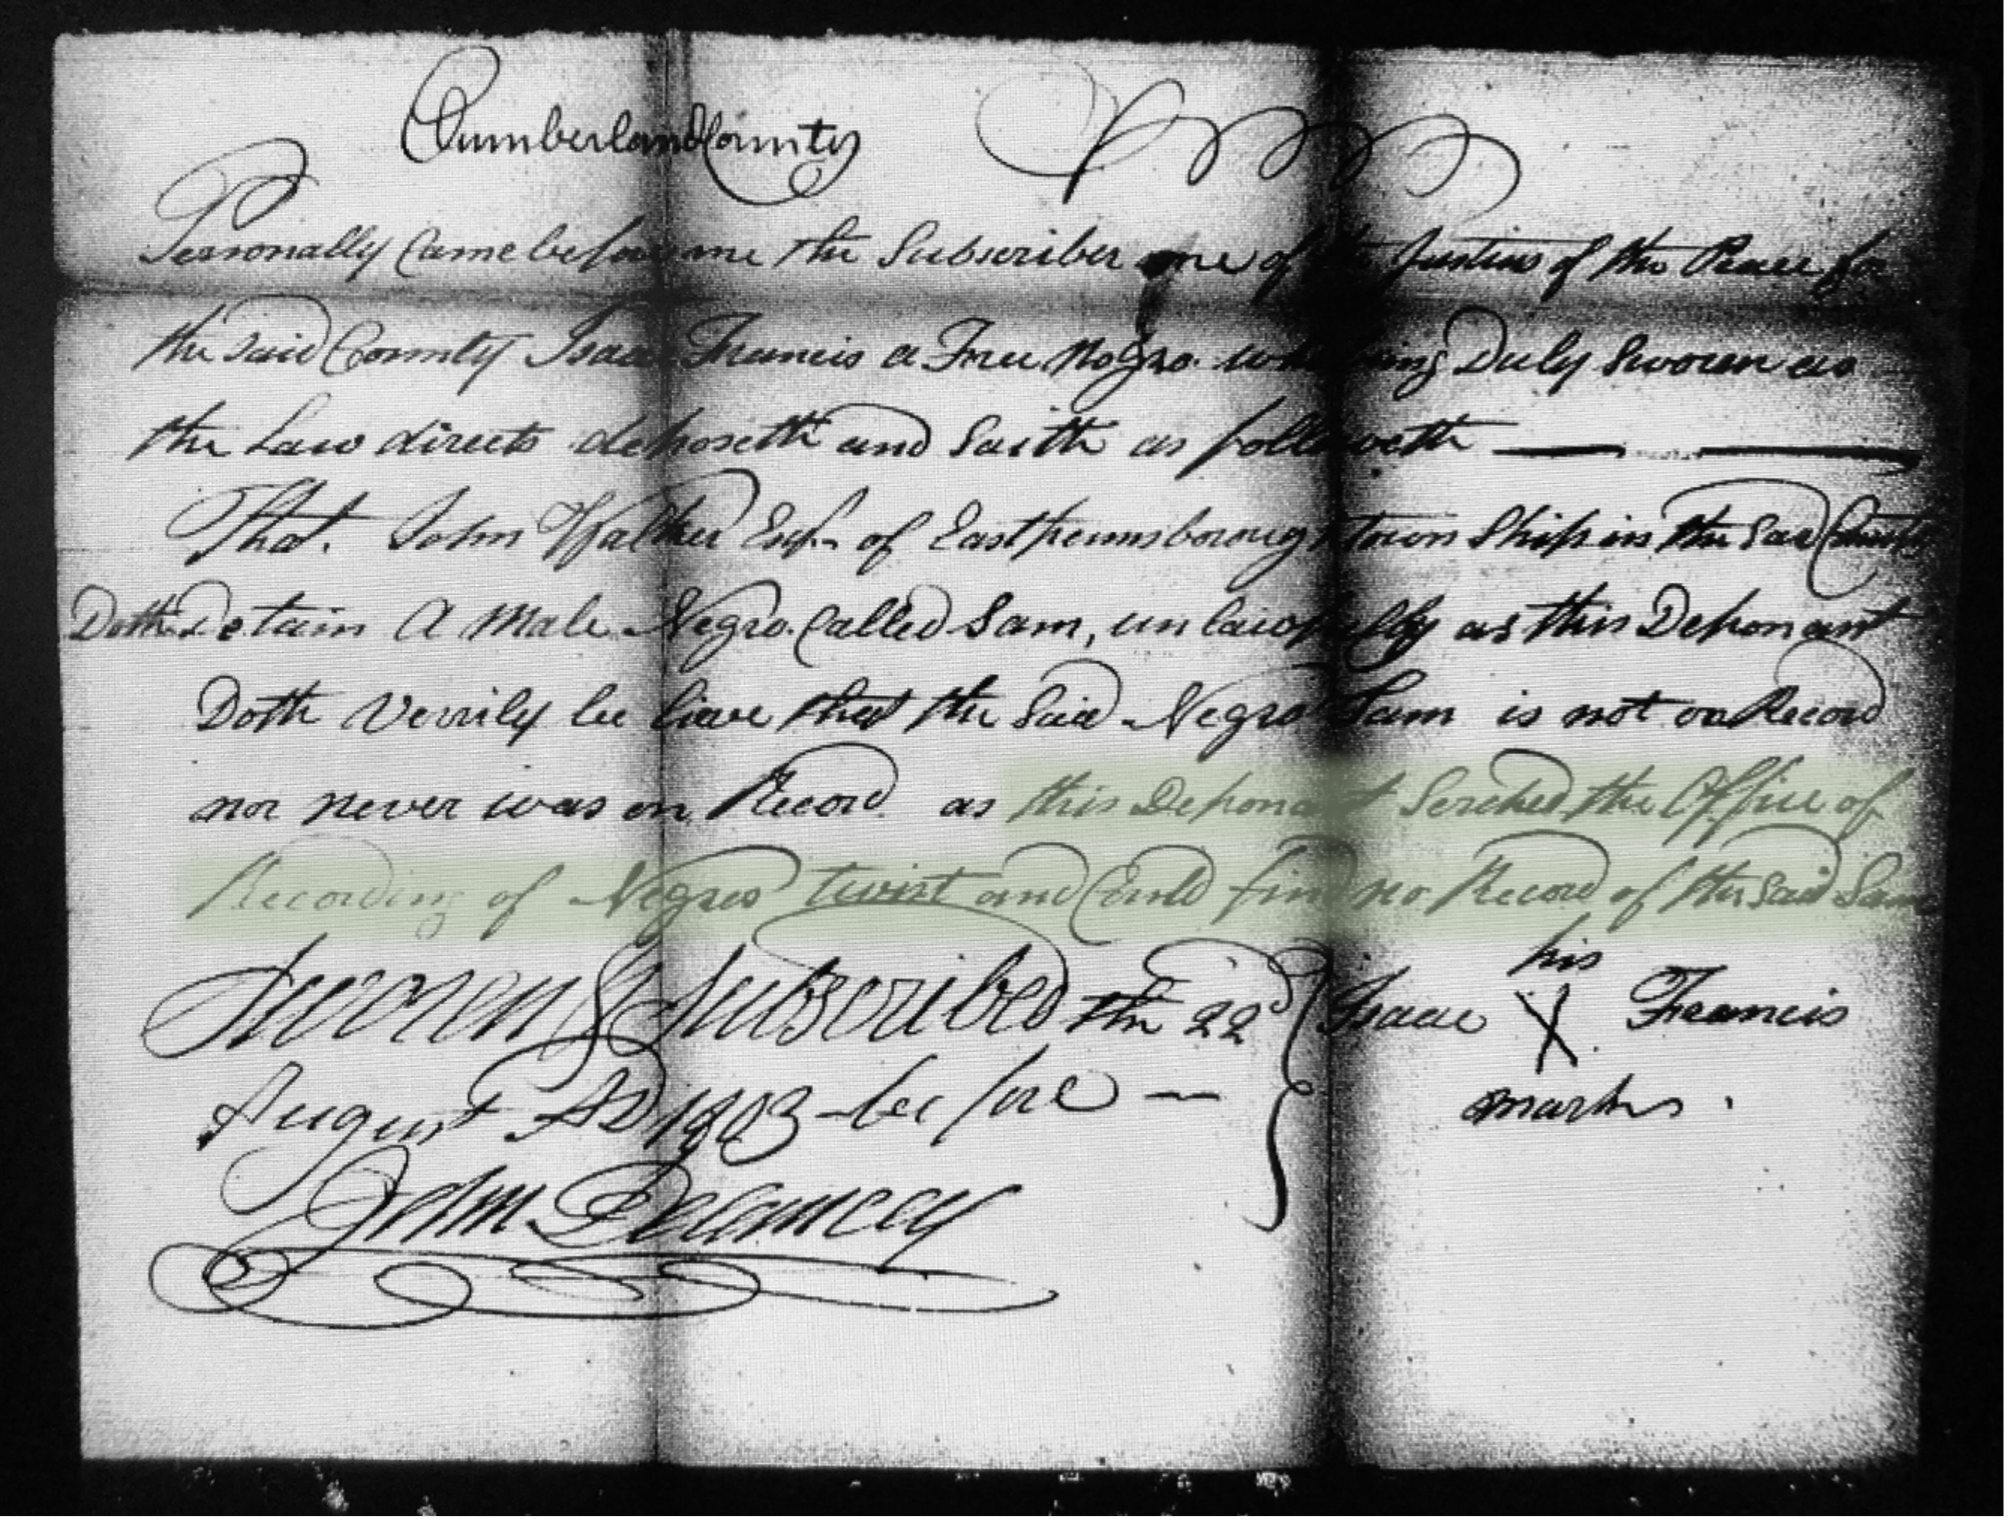 Cumberland County
Personally Came before me the Subscriber one of the Justices of the Peace for
the said County Isaac Francis a Free Negro who being Duly Sworen as
the Law directs deposeth and Saith as followeth
That John Walker Esqr. of Eastpennsborough town Ship in the Said County
Doth Detain A Male Negro Called Sam, unlawfully as this Deponant
Doth Verrily be lieve that the Said Negro Sam is not on Record
nor never was on Record as this Deponant Serched the Office of
Recording of Negros twist and Could find no Record of the Said Sam
Sworen & Subscribed the 22d
his
Isaac X Francis
marks.
August AD 1803 before
John Delancey